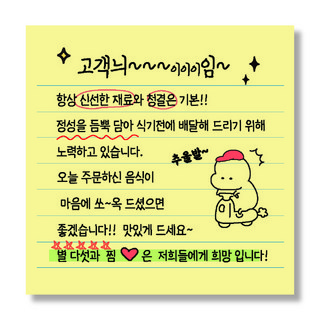 고객늬~~~이이이임~
항상 신선한 재료와 청결은 기본!!
정성을 듬뿍 담아 식기전에 배달해 드리기 위해
노력하고 있습니다.
추울발~
오늘 주문하신 음식이
마음에 쏘~옥 드셨으면
좋겠습니다!! 맛있게 드세요~
별 다섯과 찜 ♥ 은 저희들에게 희망 입니다!